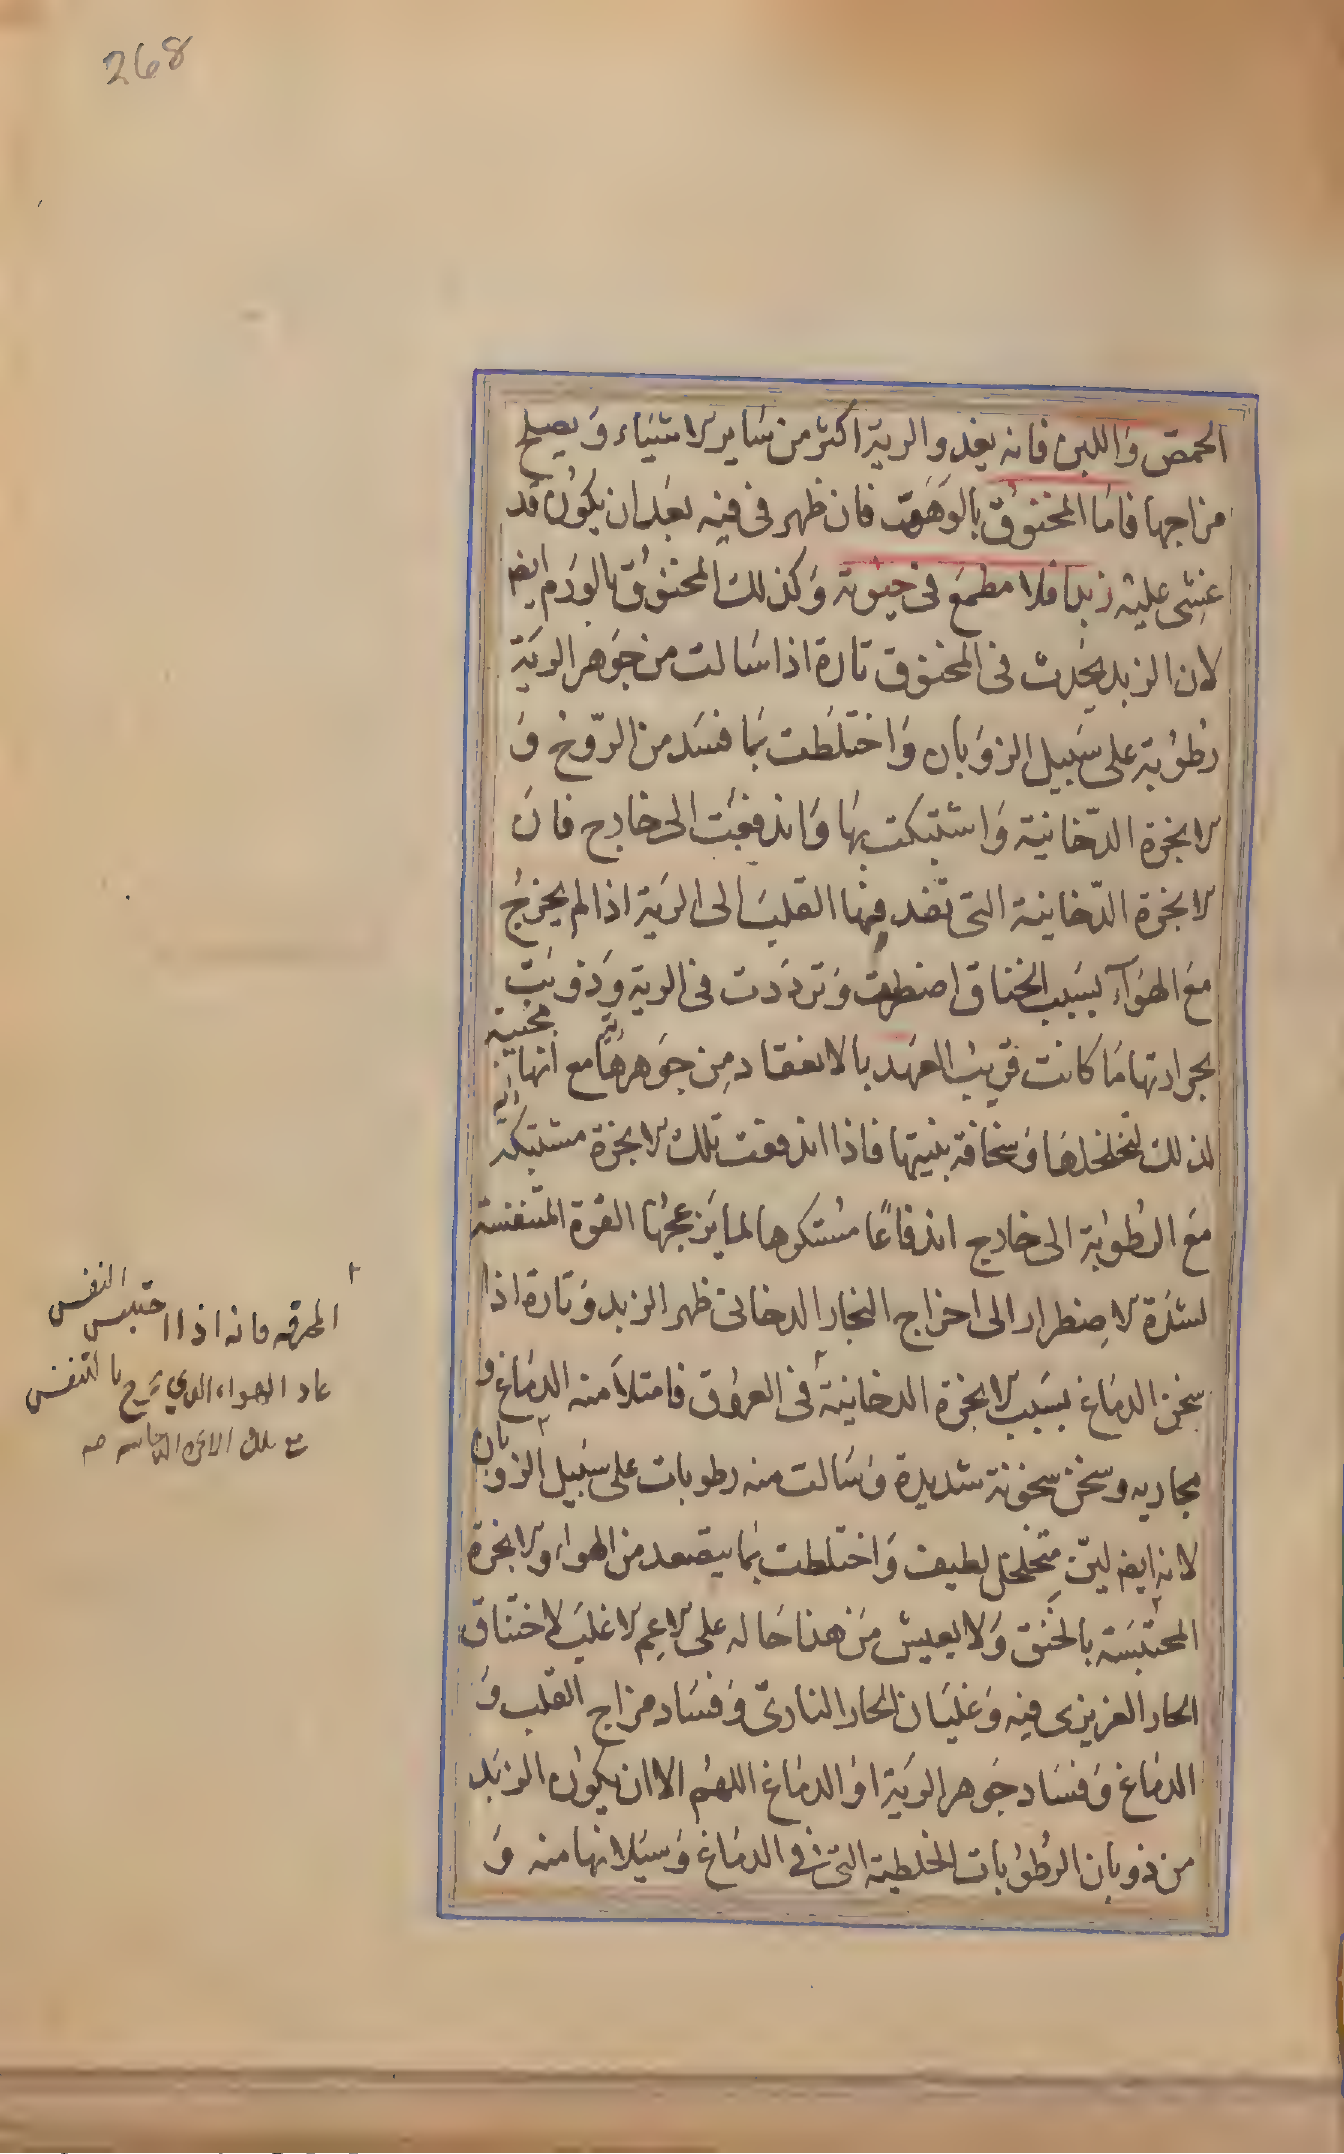 268
الحمص وَاللبن فانه يغذو الرية اكثر من سَاير الاشيَاء وَ يصلح
مزاجها فامَا المخنوُق بالوَهَق فان ظهر فى فيه بعَد ان يكوُن قد
غشى عليْه زبد فلا مطمَع فى حيٰوته وَكذلك المخنوُق بالورَم ايضا
لان الزبد يحَدث فى المخنوق تارة اذا سَالت من جَوهر الريَة
رطوُبَة على سَبيل الذوَبان وَاختلَطت بمَا فسَد من الرّوح وَ
الابخرة الدّخانية وَاشتبكت بهَا وَاندفعَت الى خارج فانَ
الابخرة الدّخانية التى تنفذ من القلبَ الى الريَة اذا لم يخرجُ
مَع الهوَآء بسَبب الخناق اضطربت وَتردَدت فى الرية وَذوبَت
بحرارتها مَا كانت قريبُ العَهد بالانعقاد مِن جَوهرهَا مع انها
لذلك لتخلخلهَا وَسخافة بنيتها فاذا اندفعت تلك الابخرة مشتبكة
مَع الرطُوبَة الى خارج اندفاعًا مسُتكرها لما يزعجهُا القوة المتنفسة
لشدَة الاضِطرار الى اخراج البخار الدخانى ظهر الزبد وَتارة اذا
سخن الدمَاغ بسَبب الابخرة الدخانيةَ فى العروُق فامتلاَ منه الدمَاغ و
مجاريه وسخن سخونة شديدة وَسَالت منه رطوبات على سَبيل الذوَبان
لانه ايضا ليّن متخلخل لطيف وَاختلطت بمَا يتصعد من الهواء والابخرة
المحتبسَة بالخَنق وَلا يعيش مَن هذا حَاله على الاعِم الاغلبَ لاختناق
الحار الغريزى فيه وَغليَان الحار النارىّ وَفسَاد مزاج القلب وَ
الدمَاغ وَفسَاد جَوهر الريَة اوُ الدمَاغ اللهمُ الا ان يكوُن الزبَد
من ذوبان الرطوُبات الخلطية التى فى الدمَاغ وَسيَلانها منه وَ
المحرقه فانه اذا احتبس النفس
عاد الهواء الذي يخرج بالتنفس
مع تلك الابخره الدخانيه صه